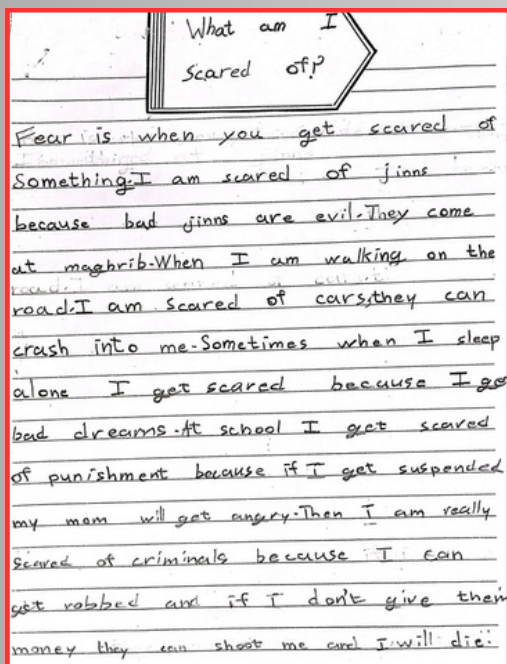 What am I
Scared of?
Fear is when you get scared of
Something.I am scared of jinns
because bad jinns are evil.They come
at maghrib.When I am walking on the
road.I am scared of cars,they can
crash into me.Sometimes when I sleep
alone I get scared because I ge
bad dreams.At school I get scared
of punishment because if I get suspended
my mom will get angry.Then I am really
scared of criminals because I can
get robbed and if I don't give them
money they can shoot me and I will die.